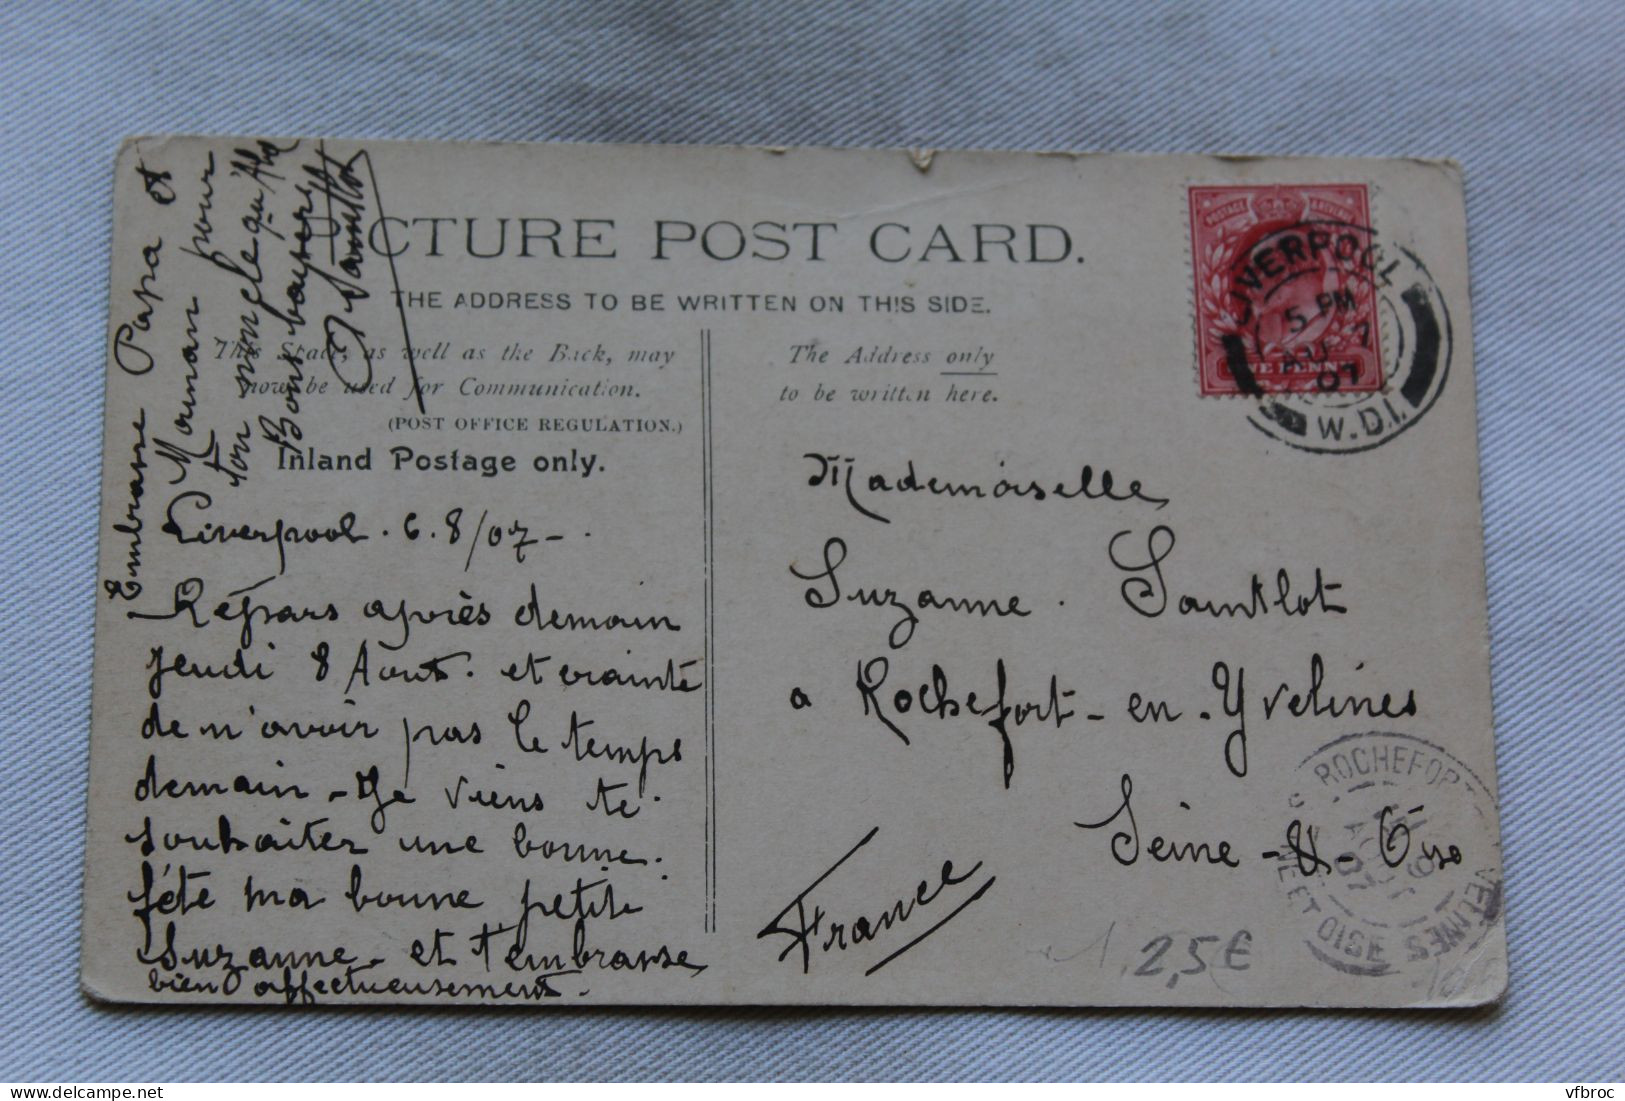 PICTURE POST CARD.
THE ADDRESS TO BE WRITTEN ON THIS SIDE.
This Space, as well as the Back, may
now be used for Communication.
(POST OFFICE REGULATION.)
Inland Postage only.
The Address only
to be written here.
Liverpool. 6.8/07-
Répars après demain
jeudi 8 Aout. et crainte
de n'avoir pas le temps
demain - Je viens te
souhaiter une bonne
fête ma bonne petite
Suzanne - et t'embrasse
bien affectueusement.
Embrasse Papa et
Maman pour
ton oncle qui
Bons baisers
Mademoiselle
Suzanne. Saintlot
a Rochefort-en-Yvelines
Seine-&-Oise
France
POSTAGE
ONE PENNY
LIVERPOOL
5 PM
AU 7
07
W.D.I.
ROCHEFORT
YVELINES
SEINE ET OISE
9
AOUT
07
2,5€
vfbroc